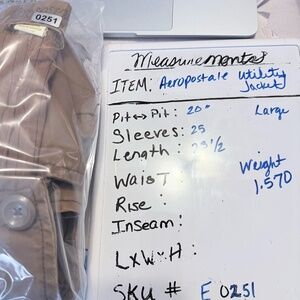 0251
Measurements
ITEM: Aeropostale Utility Jacket
Pit↔Pit: 20" Large
Sleeves: 25
Length: 1/2
Waist Weight 1.570
Rise:
Inseam:
LxWxH:
SKU # E 0251